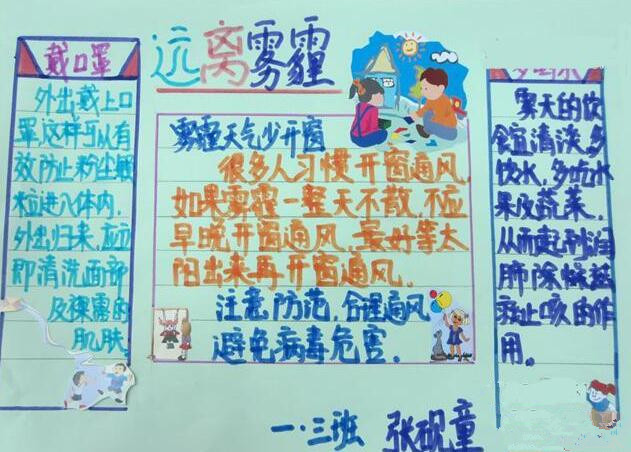 远离雾霾
戴口罩
外出戴上口
罩这样可以有
效防止粉尘颗
粒进入体内,
外出归来,应立
即清洗面部
及裸露的
肌肤。
雾霾天气少开窗
很多人习惯开窗通风,
如果雾霾一整天不散,不应
早晚开窗通风,最好等太
阳出来再开窗通风.
注意防范,合理通风
避免病毒危害.
雾天的饮
食宜清淡,多
饮水,多吃水
果及蔬菜,
从而起到润
肺除燥祛
痰止咳的作
用.
一·三班 张砚童